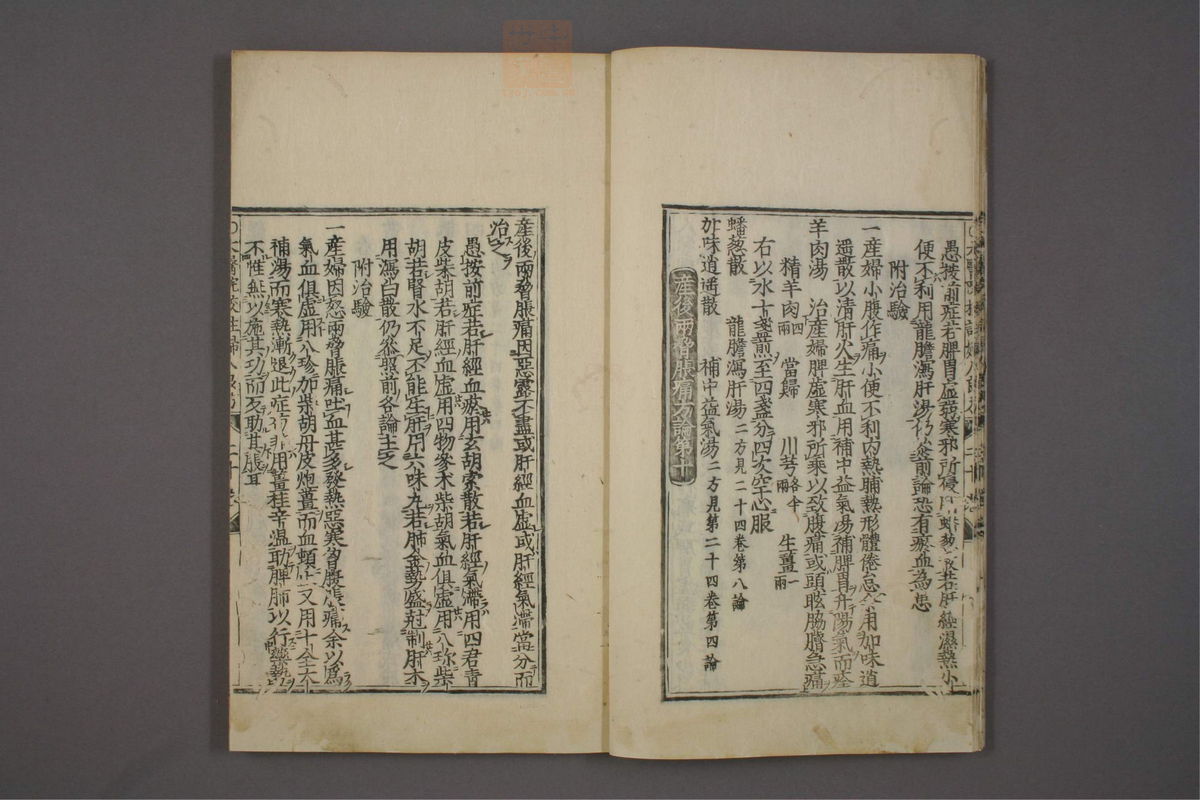 愚按前症若脾胃虛弱寒邪所侵用蟠葱散若肝經濕熱小
便不利用龍膽瀉肝湯仍叅前論恐有瘀血為患
附治驗
一産婦小腹作痛小便不利内熱晡熱形體倦怠余用加味逍
遥散以清肝火生肝血用補中益氣湯補脾胃升陽氣而痊
羊肉湯 治産婦脾虛寒邪所乘以致腹痛或頭眩脇臍急痛
精羊肉四兩 當歸 川芎各半兩 生薑一兩
右以水十盞煎至四盞分四次空心服
蟠葱散 龍膽瀉肝湯二方見二十四卷第八論
加味逍遥散 補中益氣湯二方見第二十四卷第四論
産後兩脅脹痛方論第十
産後兩脅脹痛因惡露不盡或肝經血虛或肝經氣滯當分而
治之
愚按前症若肝經血瘀用玄胡索散若肝經氣滯用四君青
皮柴胡若肝經血虛用四物參朮柴胡氣血俱虛用八珎柴
胡若腎水不足不能生肝用六味丸若肺金勢盛尅制肝木
用瀉白散仍叅照前各論主之
附治驗
一産婦因怒兩脅脹痛吐血甚多發熱惡寒胷腹脹痛余以爲
氣血俱虛用八珍加柴胡丹皮炮薑而血頓止又用十全大
補湯而寒熱漸退此症非用薑桂辛溫助脾肺以行藥勢
不惟無以施其功而反助其脹耳